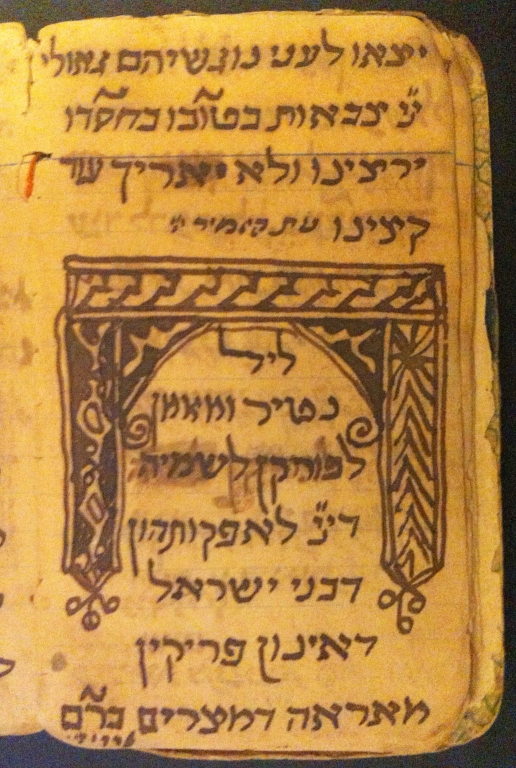 ייצאו לעני נוגשיהם גאולי
יי֗ צבאות בטובו בחסדו
ירצינו ולא יאריך עד
קצינו
ליל
נטיר ומאמן
לפורקן לשמיה
דיי֗ לאפקותהון
דבני ישראל
דאינון פריקין
מארעה דמצרים